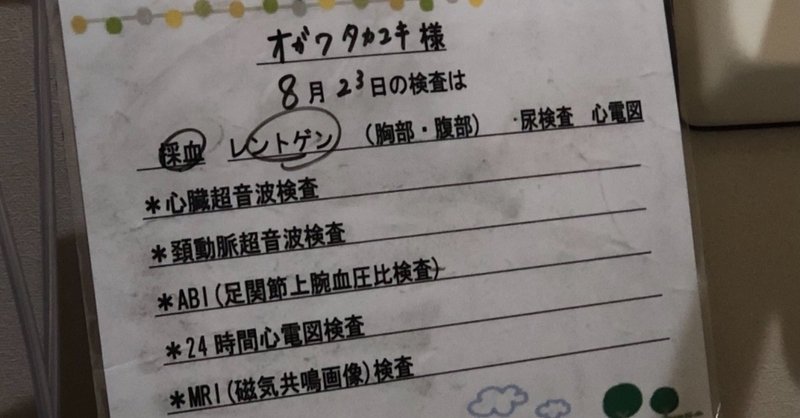 オガワタカユキ様
8月23日の検査は
採血 レントゲン (胸部・腹部) ・尿検査 心電図
*心臓超音波検査
*頚動脈超音波検査
*ABI(足関節上腕血圧比検査)
*24時間心電図検査
*MRI(磁気共鳴画像)検査